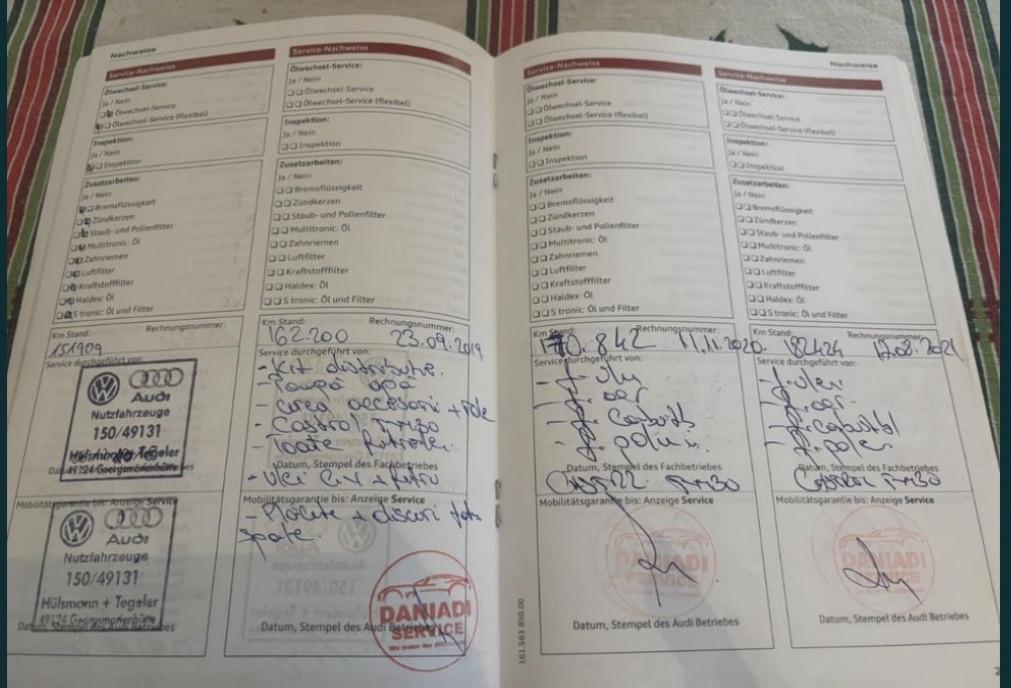 Nachweise
Service-Nachweise
Ölwechsel-Service:
Ja / Nein
Ölwechsel-Service
Ölwechsel-Service (flexibel)
Inspektion:
Ja / Nein
Inspektion
Zusatzarbeiten:
Ja / Nein
Bremsflüssigkeit
Zündkerzen
Staub- und Pollenfilter
Multitronic: Öl
Zahnriemen
Luftfilter
Kraftstofffilter
Haldex: Öl
S tronic: Öl und Filter
Km Stand:
Rechnungsnummer:
151909
Service durchgeführt von:
Audi
Nutzfahrzeuge
150/49131
Hülsmann + Tegeler
49124 Georgsmarienhütte
Mobilitätsgarantie bis: Anzeige Service
Audi
Nutzfahrzeuge
150/49131
Hülsmann + Tegeler
49124 Georgsmarienhütte
Datum, Stempel des Audi Betriebes
Service-Nachweise
Ölwechsel-Service:
Ja / Nein
Ölwechsel-Service
Ölwechsel-Service (flexibel)
Inspektion:
Ja / Nein
Inspektion
Zusatzarbeiten:
Ja / Nein
Bremsflüssigkeit
Zündkerzen
Staub- und Pollenfilter
Multitronic: Öl
Zahnriemen
Luftfilter
Kraftstofffilter
Haldex: Öl
S tronic: Öl und Filter
Km Stand:
Rechnungsnummer:
162.200 23.09.2019
Service durchgeführt von:
- Kit distributie.
- Pompă apă
- curea accesorii + role
- Castrol
- Toate filtrele.
Datum, Stempel des Fachbetriebes
- Ulei C.V + filtru
Mobilitätsgarantie bis: Anzeige Service
- Placute + discuri fata
spate.
DANIADI
SERVICE
Datum, Stempel des Audi Betriebes
Nachweise
Service-Nachweise
Ölwechsel-Service:
Ja / Nein
Ölwechsel-Service
Ölwechsel-Service (flexibel)
Inspektion:
Ja / Nein
Inspektion
Zusatzarbeiten:
Ja / Nein
Bremsflüssigkeit
Zündkerzen
Staub- und Pollenfilter
Multitronic: Öl
Zahnriemen
Luftfilter
Kraftstofffilter
Haldex: Öl
S tronic: Öl und Filter
Km Stand:
Rechnungsnummer:
170.842 11.11.2020
Service durchgeführt von:
- f. ulei
- f. aer
- f. polen
Datum, Stempel des Fachbetriebes
Mobilitätsgarantie bis: Anzeige Service
DANIADI
SERVICE
Datum, Stempel des Audi Betriebes
161.563.850.00
Service-Nachweise
Ölwechsel-Service:
Ja / Nein
Ölwechsel-Service
Ölwechsel-Service (flexibel)
Inspektion:
Ja / Nein
Inspektion
Zusatzarbeiten:
Ja / Nein
Bremsflüssigkeit
Zündkerzen
Staub- und Pollenfilter
Multitronic: Öl
Zahnriemen
Luftfilter
Kraftstofffilter
Haldex: Öl
S tronic: Öl und Filter
Km Stand:
Rechnungsnummer:
182424
Service durchgeführt von:
- f. ulei
- f. aer
- f. polen
Datum, Stempel des Fachbetriebes
Castrol
Mobilitätsgarantie bis: Anzeige Service
DANIADI
SERVICE
Datum, Stempel des Audi Betriebes